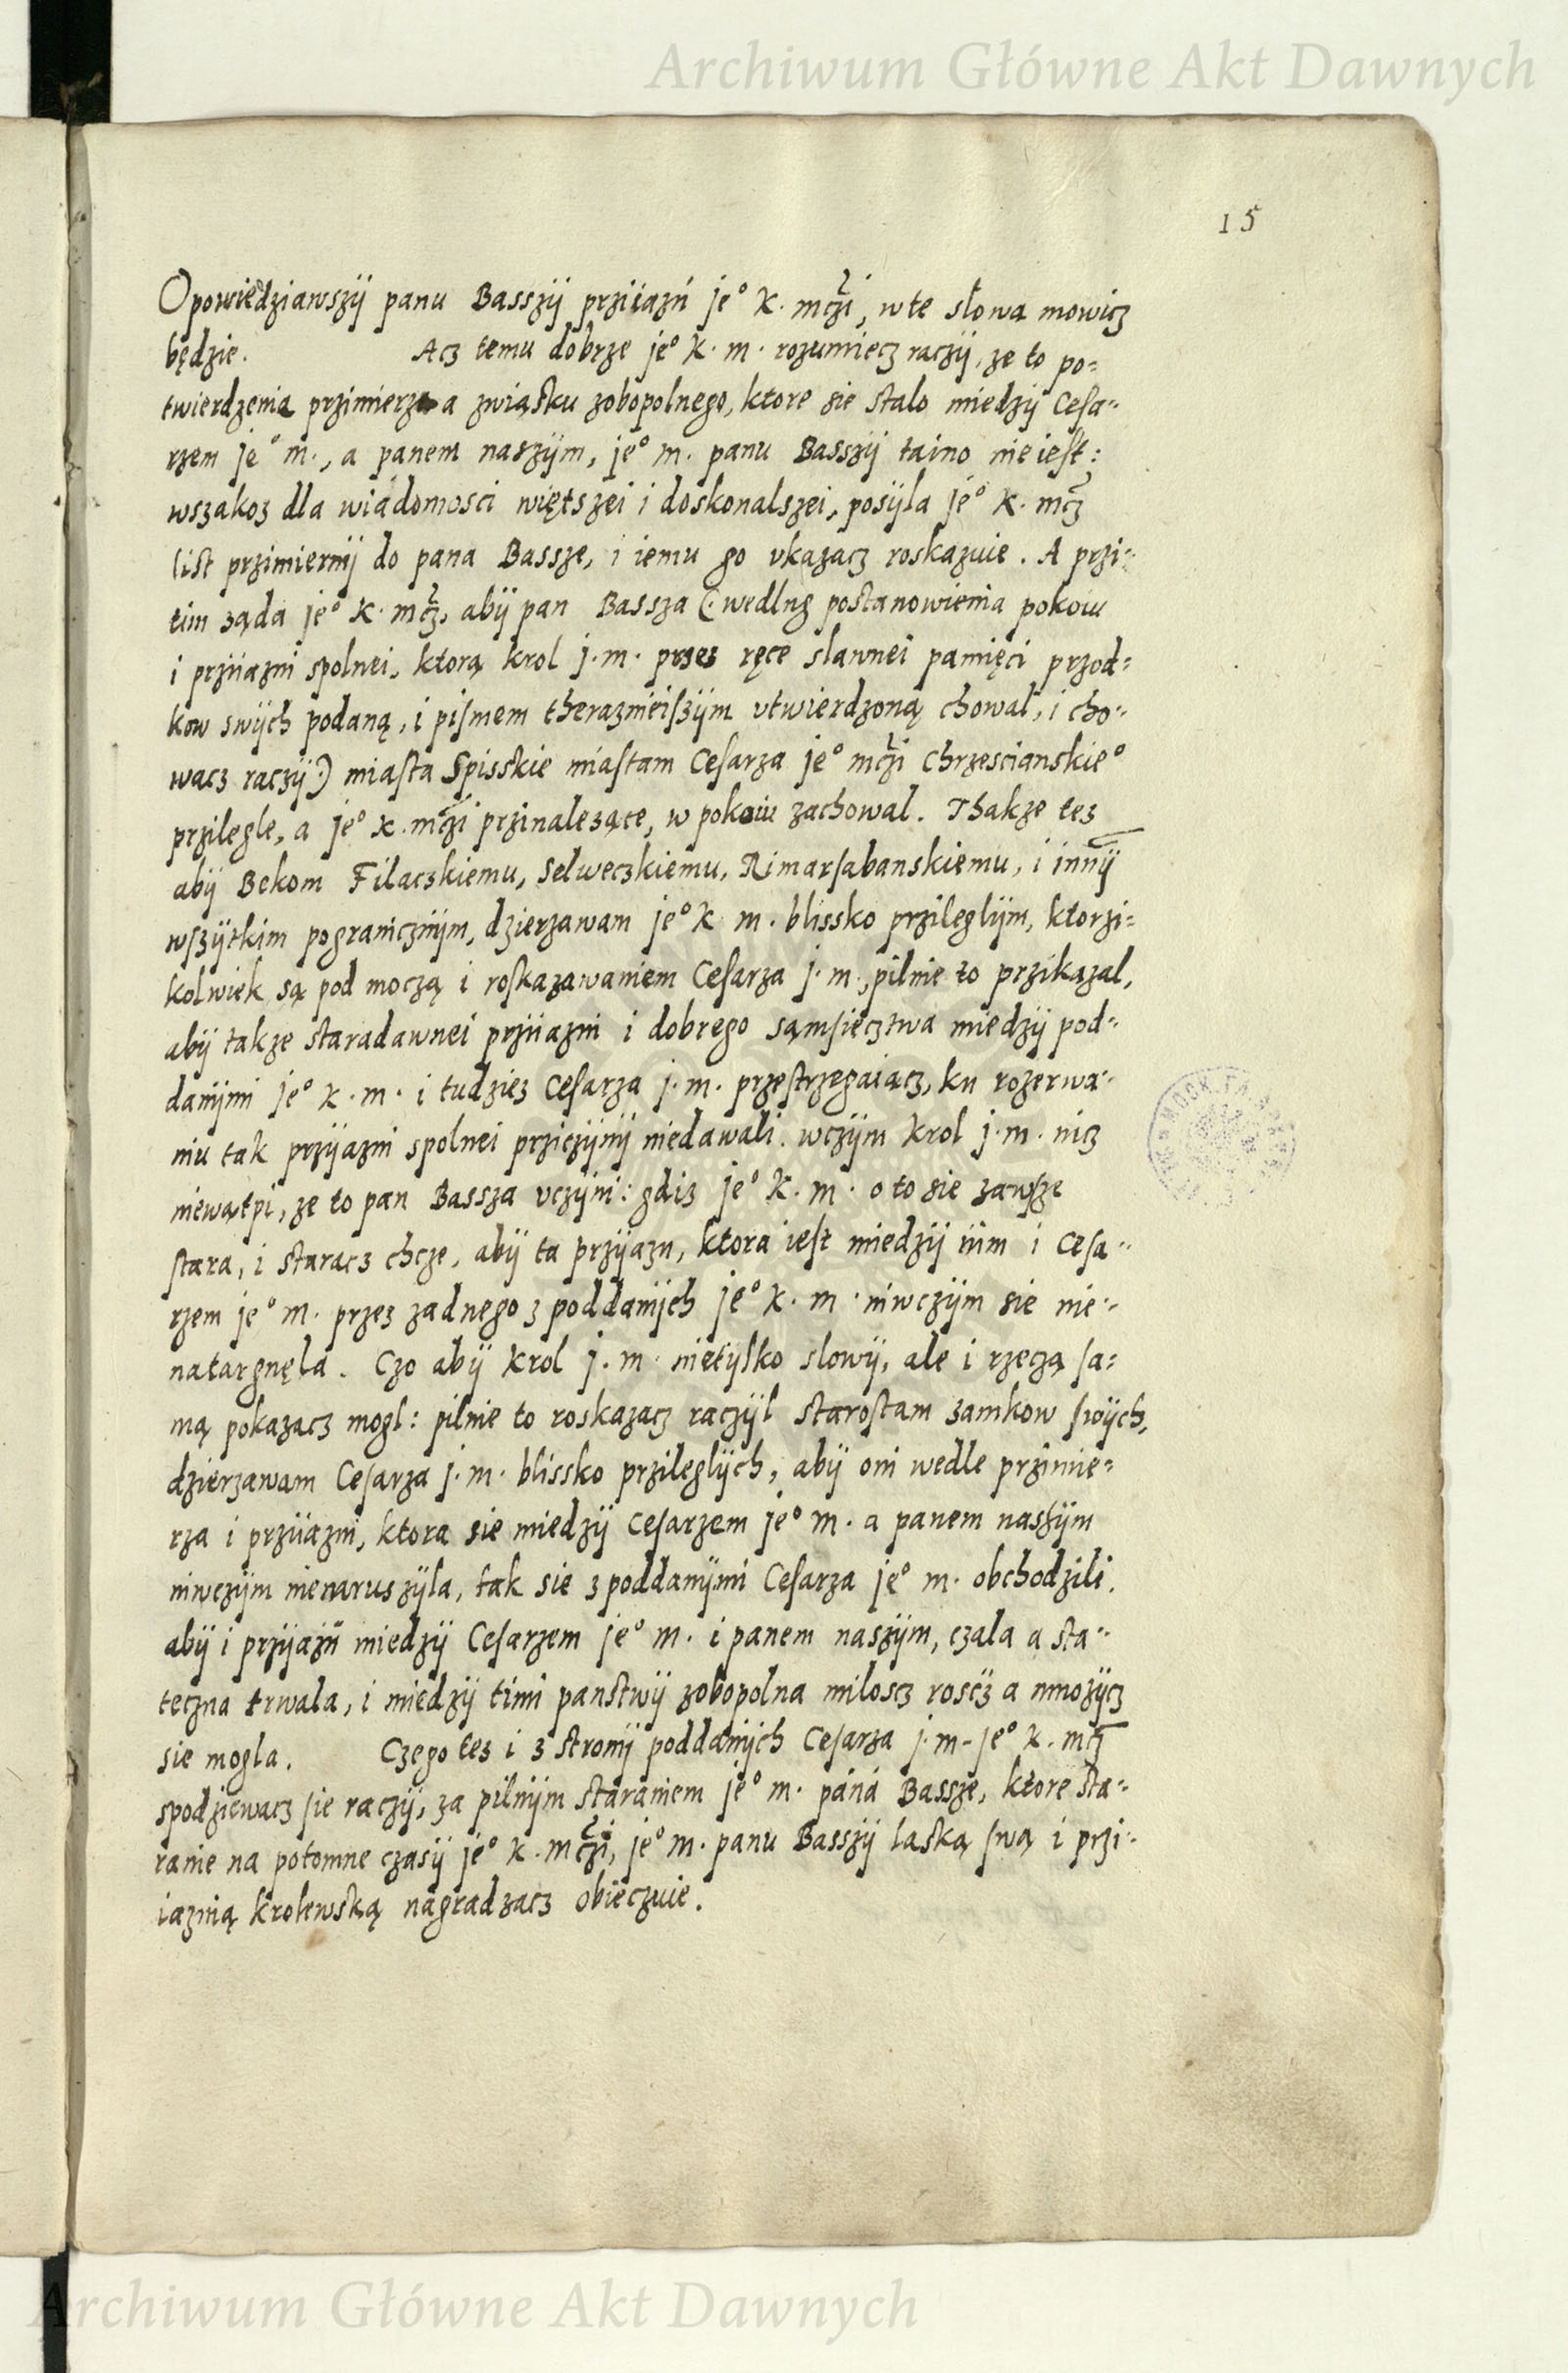 Archiwum Główne Akt Dawnych
15
Opowiedziawszÿ panu Basszÿ przÿiazń je° K. mczi, w te słowa mowicz
będzie. Acz temu dobrze je° K. m. rozumiecz raczÿ, ze to po=
twierdzenia przimierza a zwiąsku zobopolnego, ktore sie stalo miedzÿ Cesa=
rzem je° m., a panem naszÿm, je° m. panu Basszÿ taino nie iest:
wszakoz dla wiadomosci więtszei i doskonalszei, posÿla je° K. mcz
list przimiernÿ do pana Bassze, i iemu go vkazacz roskazuie. A przi=
tim ząda je° K. mcz, abÿ pan Bassza (: wedlug postanowienia pokoiu
i przÿiazni spolnei, ktorą krol j. m. przez ręce slawnei pamięci przod=
kow swÿch podaną, i pismem therazneiszÿm vtwierdzoną chowal, i cho=
wacz raczÿ :) miasta Spisskie miastam Cesarza je° mczi chrzescianskie°
przilegle, a je° K. mczi przinalezące, w pokoiu zachowal. Thakze tez
abÿ Bekom Filaczkiemu, Selweczkiemu, Rimarsabanskiemu, i innÿ
wszÿtkim pogranicznÿm, dzierzawam je° K m. blissko przileglÿm, ktorzi=
kolwiek są pod moczą i roskazawaniem Cesarza j. m., pilnie to przikazal,
abÿ takze staradawnei przÿiazni i dobrego sąmsiecztwa miedzÿ pod=
danÿmi je° K. m. i tudziez Cesarza j. m. przestrzegaiącz, ku rozerwa=
niu tak przÿiazni spolnei przÿczÿnÿ niedawali. wczÿm krol j. m. nicz
niewątpi, ze to pan Bassza vczÿni: gdiz je° K. m. o to sie zawsze
stara, i staracz chcze, abÿ ta przÿiazn, ktora iest miedzÿ nim i Cesa=
rzem je° m. przez zadnego z poddanÿch je° K. m. niwczÿm sie nie=
natargnęla. Czo abÿ krol j. m. nietÿlko slowÿ, ale i rzeczą sa=
mą pokazacz mogl: pilnie to roskazacz raczÿl starostam zamkow swÿch,
dzierzawam Cesarza j. m. blissko przileglÿch, abÿ oni wedle przimie=
rza i przÿiazni, ktora sie miedzÿ Cesarzem je° m. a panem naszÿm
niwczÿm nienaruszÿla, tak sie z poddanÿmi Cesarza je° m. obchodzili.
abÿ i przÿiazń miedzÿ Cesarzem je° m. i panem naszÿm, czala a sta=
teczna trwala, i miedzÿ timi panstwÿ zobopolna miloscz roscz a mnozÿcz
sie mogla. Czego tez i z stronÿ poddanÿch Cesarza j. m. je° K. mcz
spodziewacz sie raczÿ, za pilnÿm staraniem je° m. pana Bassze, ktore sta=
ranie na potomne czasÿ je° K. mczi, je° m. panu Basszÿ laską swą i przi=
iaznią krolewską nagradzacz obieczuie.
Archiwum Główne Akt Dawnych